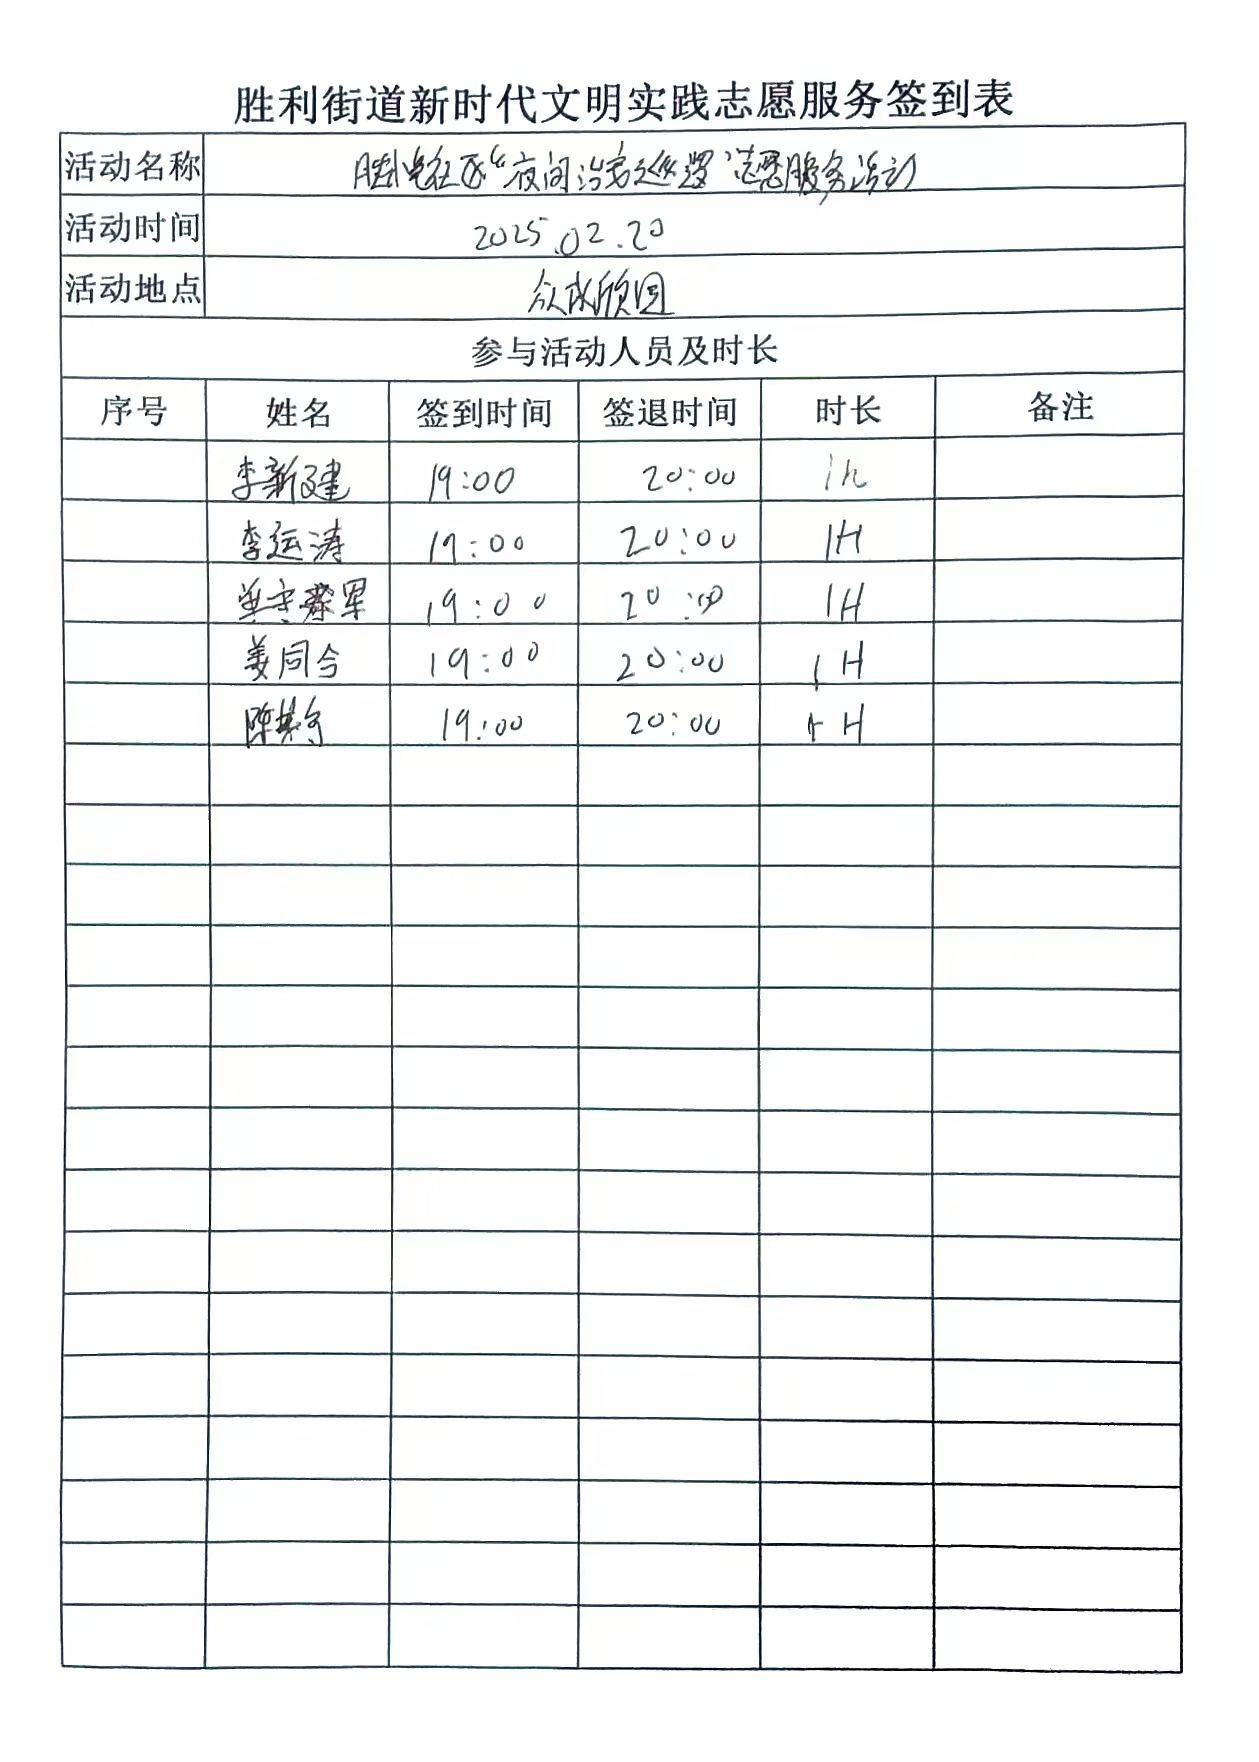 胜利街道新时代文明实践志愿服务签到表
活动名称 社区“夜间治安巡逻”志愿服务活动
活动时间 2025.02.20
活动地点 众成欣园
参与活动人员及时长
序号 姓名 签到时间 签退时间 时长 备注
李新建 19:00 20:00 1h
李运涛 19:00 20:00 1H
军 19:00 20:00 1H
姜同今 19:00 20:00 1H
陈 19:00 20:00 1H